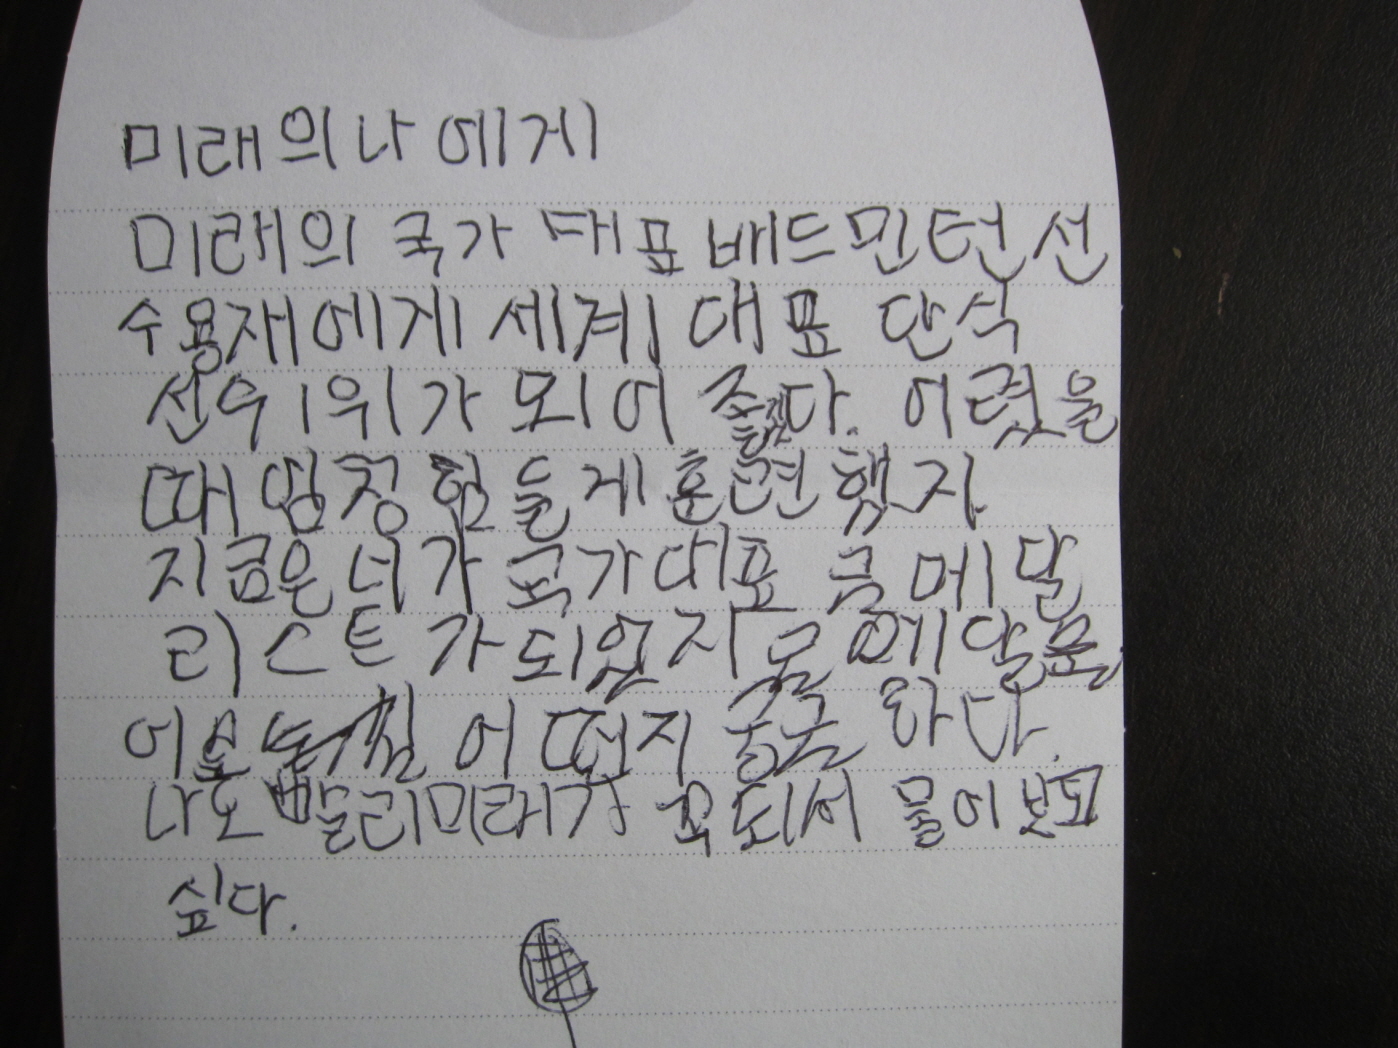 미래의나에게
미래의 국가 대표 배드민턴 선
수용재에게 세계 대표 단식
선수 1위가 되어 좋겠다. 어렸을
때 엄청 힘들게 훈련했지
지금은 너가 국가대표 금메달
리스트가되었지 금메달은
어떤지 궁금 하다.
나도 빨리미래가 꼭되서 물어보고
싶다.